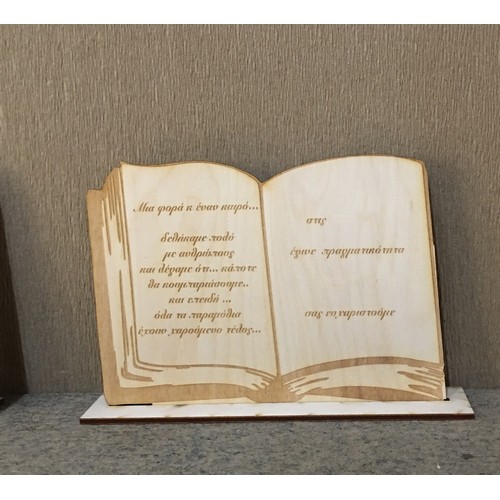 Μια φορά κ έναν καιρό...
δεθήκαμε πολύ
με ανθρώπους
και λέγαμε ότι... κάποτε
θα κουμπαριάσουμε..
και επειδή ...
όλα τα παραμύθια
έχουν χαρούμενο τέλος...
στις
έγινε πραγματικότητα
σας ευχαριστούμε